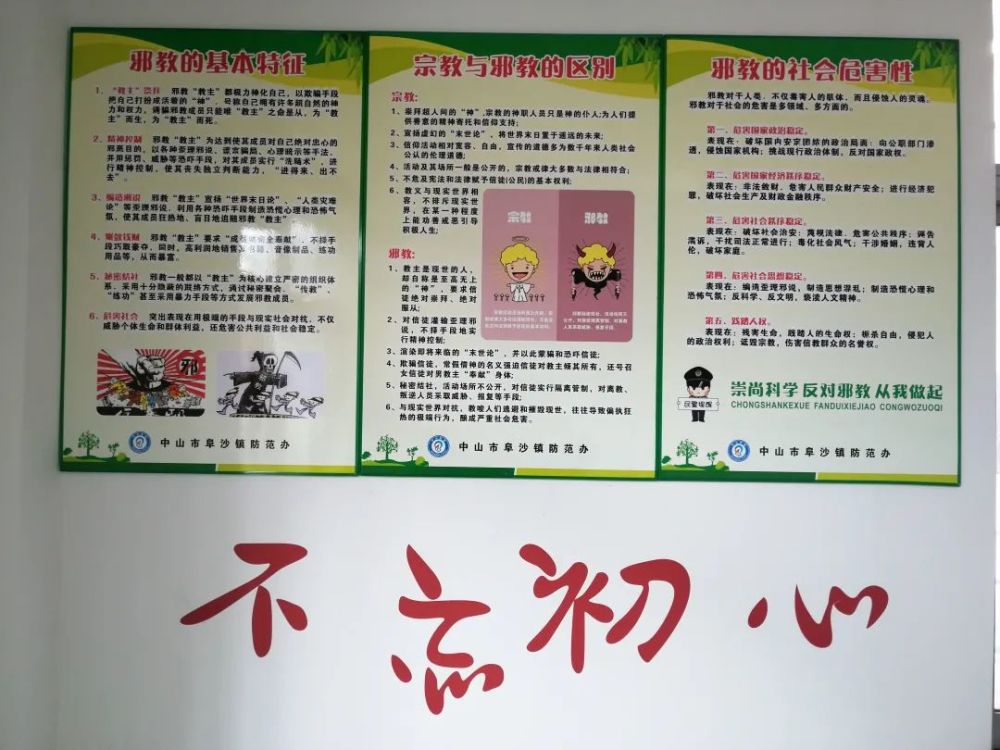 邪教的基本特征
1、“教主”崇拜 邪教“教主”都极力神化自己，以欺骗手段
把自己打扮成活着的“神”，号称自己拥有许多超自然的神
力和权力，诱骗邪教成员只能唯“教主”之命是从，为“教
主”而生，为“教主”而死。
2、精神控制 邪教“教主”为达到使其成员对自己绝对忠心的
邪恶目的，以各种歪理邪说、谎言骗局、心理暗示等手法，
并用惩罚、威胁等恐吓手段，对其成员实行“洗脑术”，进
行精神控制，使其丧失独立判断能力，“进得来、出不
去”。
3、编造邪说 邪教“教主”宣扬“世界末日论”、“人类灾难
论”等歪理邪说，利用各种恐吓手段制造恐慌心理和恐怖气
氛，使其成员狂热地、盲目地追随邪教“教主”。
4、聚敛钱财 邪教“教主”要求“成员须完全奉献”，不择手
段巧取豪夺，同时，高利润地销售其书籍、音像制品、练功
用品等，从而暴富。
5、秘密结社 邪教一般都以“教主”为核心建立严密的组织体
系，采用十分隐蔽的联络方式，通过秘密聚会、“传教”、
“练功”甚至采用暴力手段等方式发展邪教成员。
6、危害社会 突出表现在用极端的手段与现实社会对抗，不仅
威胁个体生命和群体利益，还危害公共利益和社会稳定。
邪
中山市阜沙镇防范办
宗教与邪教的区别
宗教:
1、崇拜超人间的“神”,宗教的神职人员只是神的仆人;为人们提
供善意的精神寄托和信仰支持;
2、宣扬虚幻的“末世论”，将世界末日置于遥远的未来;
3、信仰活动相对宽容、自由，宣传的道德多为数千年来人类社会
公认的伦理道德;
4、活动及其场所一般是公开的，宗教戒律大多数与法律相符合;
5、不危及宪法和法律赋予信徒(公民)的基本权利;
6、教义与现实世界相
容，不排斥现实世
界，在某一种程度
上能劝善戒恶引导
积极人生;
宗教
邪教
邪教:
1、教主是现世的人，
却自称是至高无上
的“神”，要求信
徒绝对崇拜、绝对
服从;
2、对信徒灌输歪理邪
说，不择手段地实
行精神控制;
3、渲染即将来临的“末世论”，并以此蒙骗和恐吓信徒;
4、欺骗信徒，常假借神的名义强迫信徒对教主倾其所有，还号召
女信徒对男教主“奉献”身体;
5、秘密结社，活动场所不公开，对信徒实行隔离管制，对离教、
叛逆人员采取威胁、报复等手段;
6、与现实世界对抗，教唆人们逃避和摧毁现世，往往导致偏执狂
热的极端行为，酿成严重社会危害。
中山市阜沙镇防范办
邪教的社会危害性
邪教对于人类，不仅毒害人的躯体，而且侵蚀人的灵魂。
邪教对于社会的危害是多领域、多方面的。
第一，危害国家政治稳定。
表现在：破坏国内安定团结的政治局面；向公职部门渗
透，侵蚀国家机构；挑战现行政治体制，反对国家政权。
第二，危害国家经济秩序稳定。
表现在：非法敛财，危害人民群众财产安全；进行经济犯
罪，破坏社会生产及财政金融秩序。
第三，危害社会秩序稳定。
表现在：破坏社会治安；蔑视法律，危害公共秩序；诬告
滥诉，干扰司法正常进行；毒化社会风气；干涉婚姻，违背人
伦，破坏家庭。
第四，危害社会思想稳定。
表现在：编造歪理邪说，制造思想混乱；制造恐慌心理和
恐怖气氛；反科学、反文明，亵渎人文精神。
第五，践踏人权。
表现在：残害生命，践踏人的生命权；扼杀自由，侵犯人
的政治权利；诋毁宗教，伤害信教群众的名誉权。
民警提醒
崇尚科学 反对邪教 从我做起
CHONGSHANKEXUE FANDUIXIEJIAO CONGWOZUOQI
中山市阜沙镇防范办
不忘初心